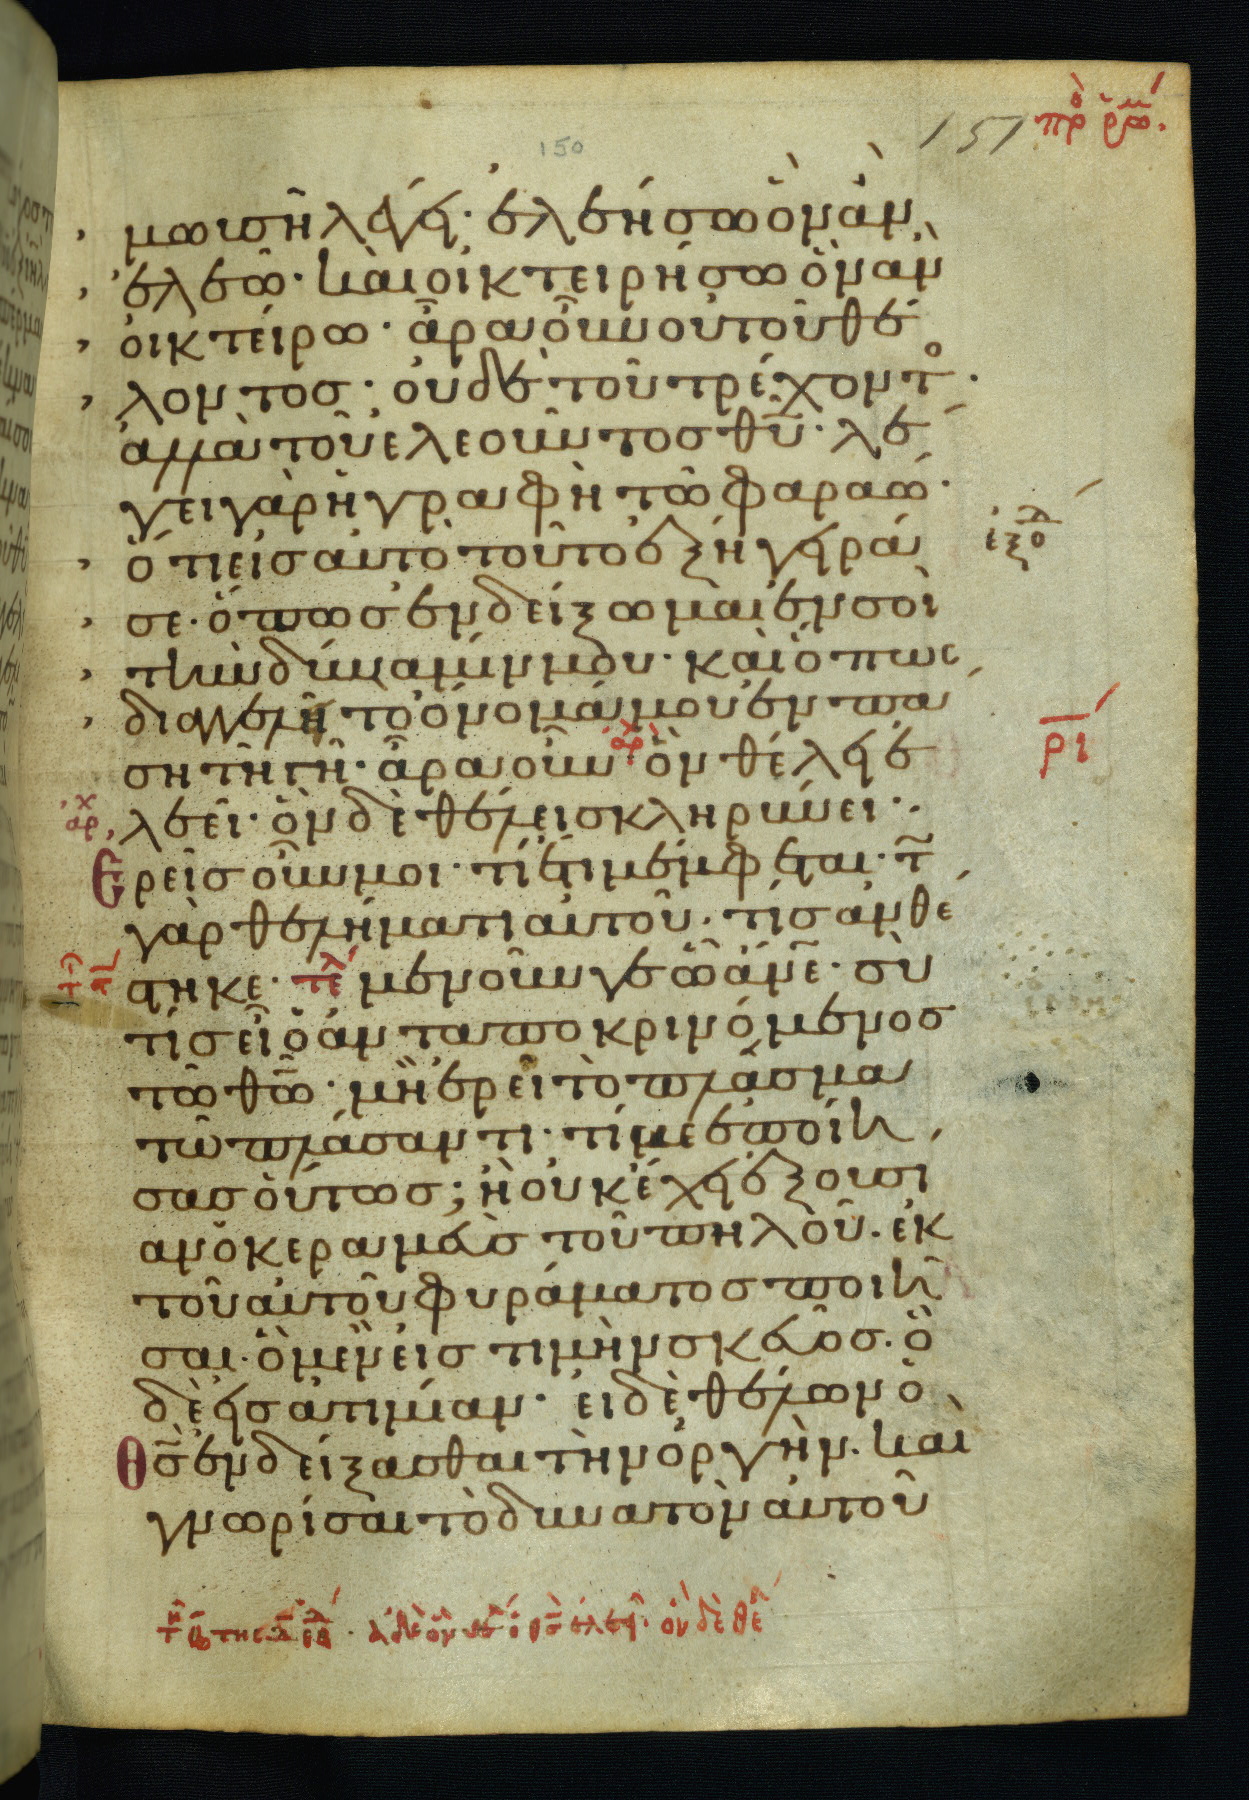 150
151 πρ ρωμ
μωυσῆ λέγει· ἐλεήσω ὃν ἂν
ἐλεῶ· καὶ οἰκτειρήσω ὃν ἂν
οἰκτείρω· ἄρα οὖν οὐ τοῦ θέ
λοντος· οὐδὲ τοῦ τρέχοντο.
ἀλλὰ τοῦ ἐλεοῦντος θῦ· λέ
γει γὰρ ἡ γραφὴ τῶ φαραώ·
ὅτι εἰς αὐτὸ τοῦτο ἐξήγειρά
ἐξο
σε· ὅπως ἐνδείξωμαι ἐν σοὶ
τὴν δύναμίν μου· καὶ ὅπως
διαγγελῆ τὸ ὄνομά μου ἐν πά
ση τῆ γῆ· ἄρα οὖν αρχ ὃν θέλει ἐ
ρι
αρχ λεεῖ· ὃν δὲ θέλει σκληρύνει·
Ερεῖς οὖν μοι· τί ἔτι μέμφεται· τ
γὰρ θελήματι αὐτοῦ· τίς ἀνθέ
στηκε· τελ μενοῦνγε ὦ ἄνε· σὺ
τίς εἶ ὁ ἀνταποκρινόμενος
τῶ θῶ· μὴ ἐρεῖ τὸ πλάσμα
τῶ πλάσαντι· τί με ἐποίη
σας οὕτως; ἢ οὐκ ἔχει ἐξουσί
αν ὁ κεραμεὺς τοῦ πηλοῦ. ἐκ
τοῦ αὐτοῦ φυράματος ποιῆ
σαι· ὃ μὲν εἰς τιμὴν σκεῦος. ὃ
δὲ εἰς ἀτιμίαν· εἰ δὲ θέλων ὁ
Θς ἐνδείξασθαι τὴν ὀργὴν. καὶ
γνωρίσαι τὸ δυνατὸν αὐτοῦ
ἀδελ ὃν θε ὁ θς ἐλεεῖ· ὃν δὲ θέ